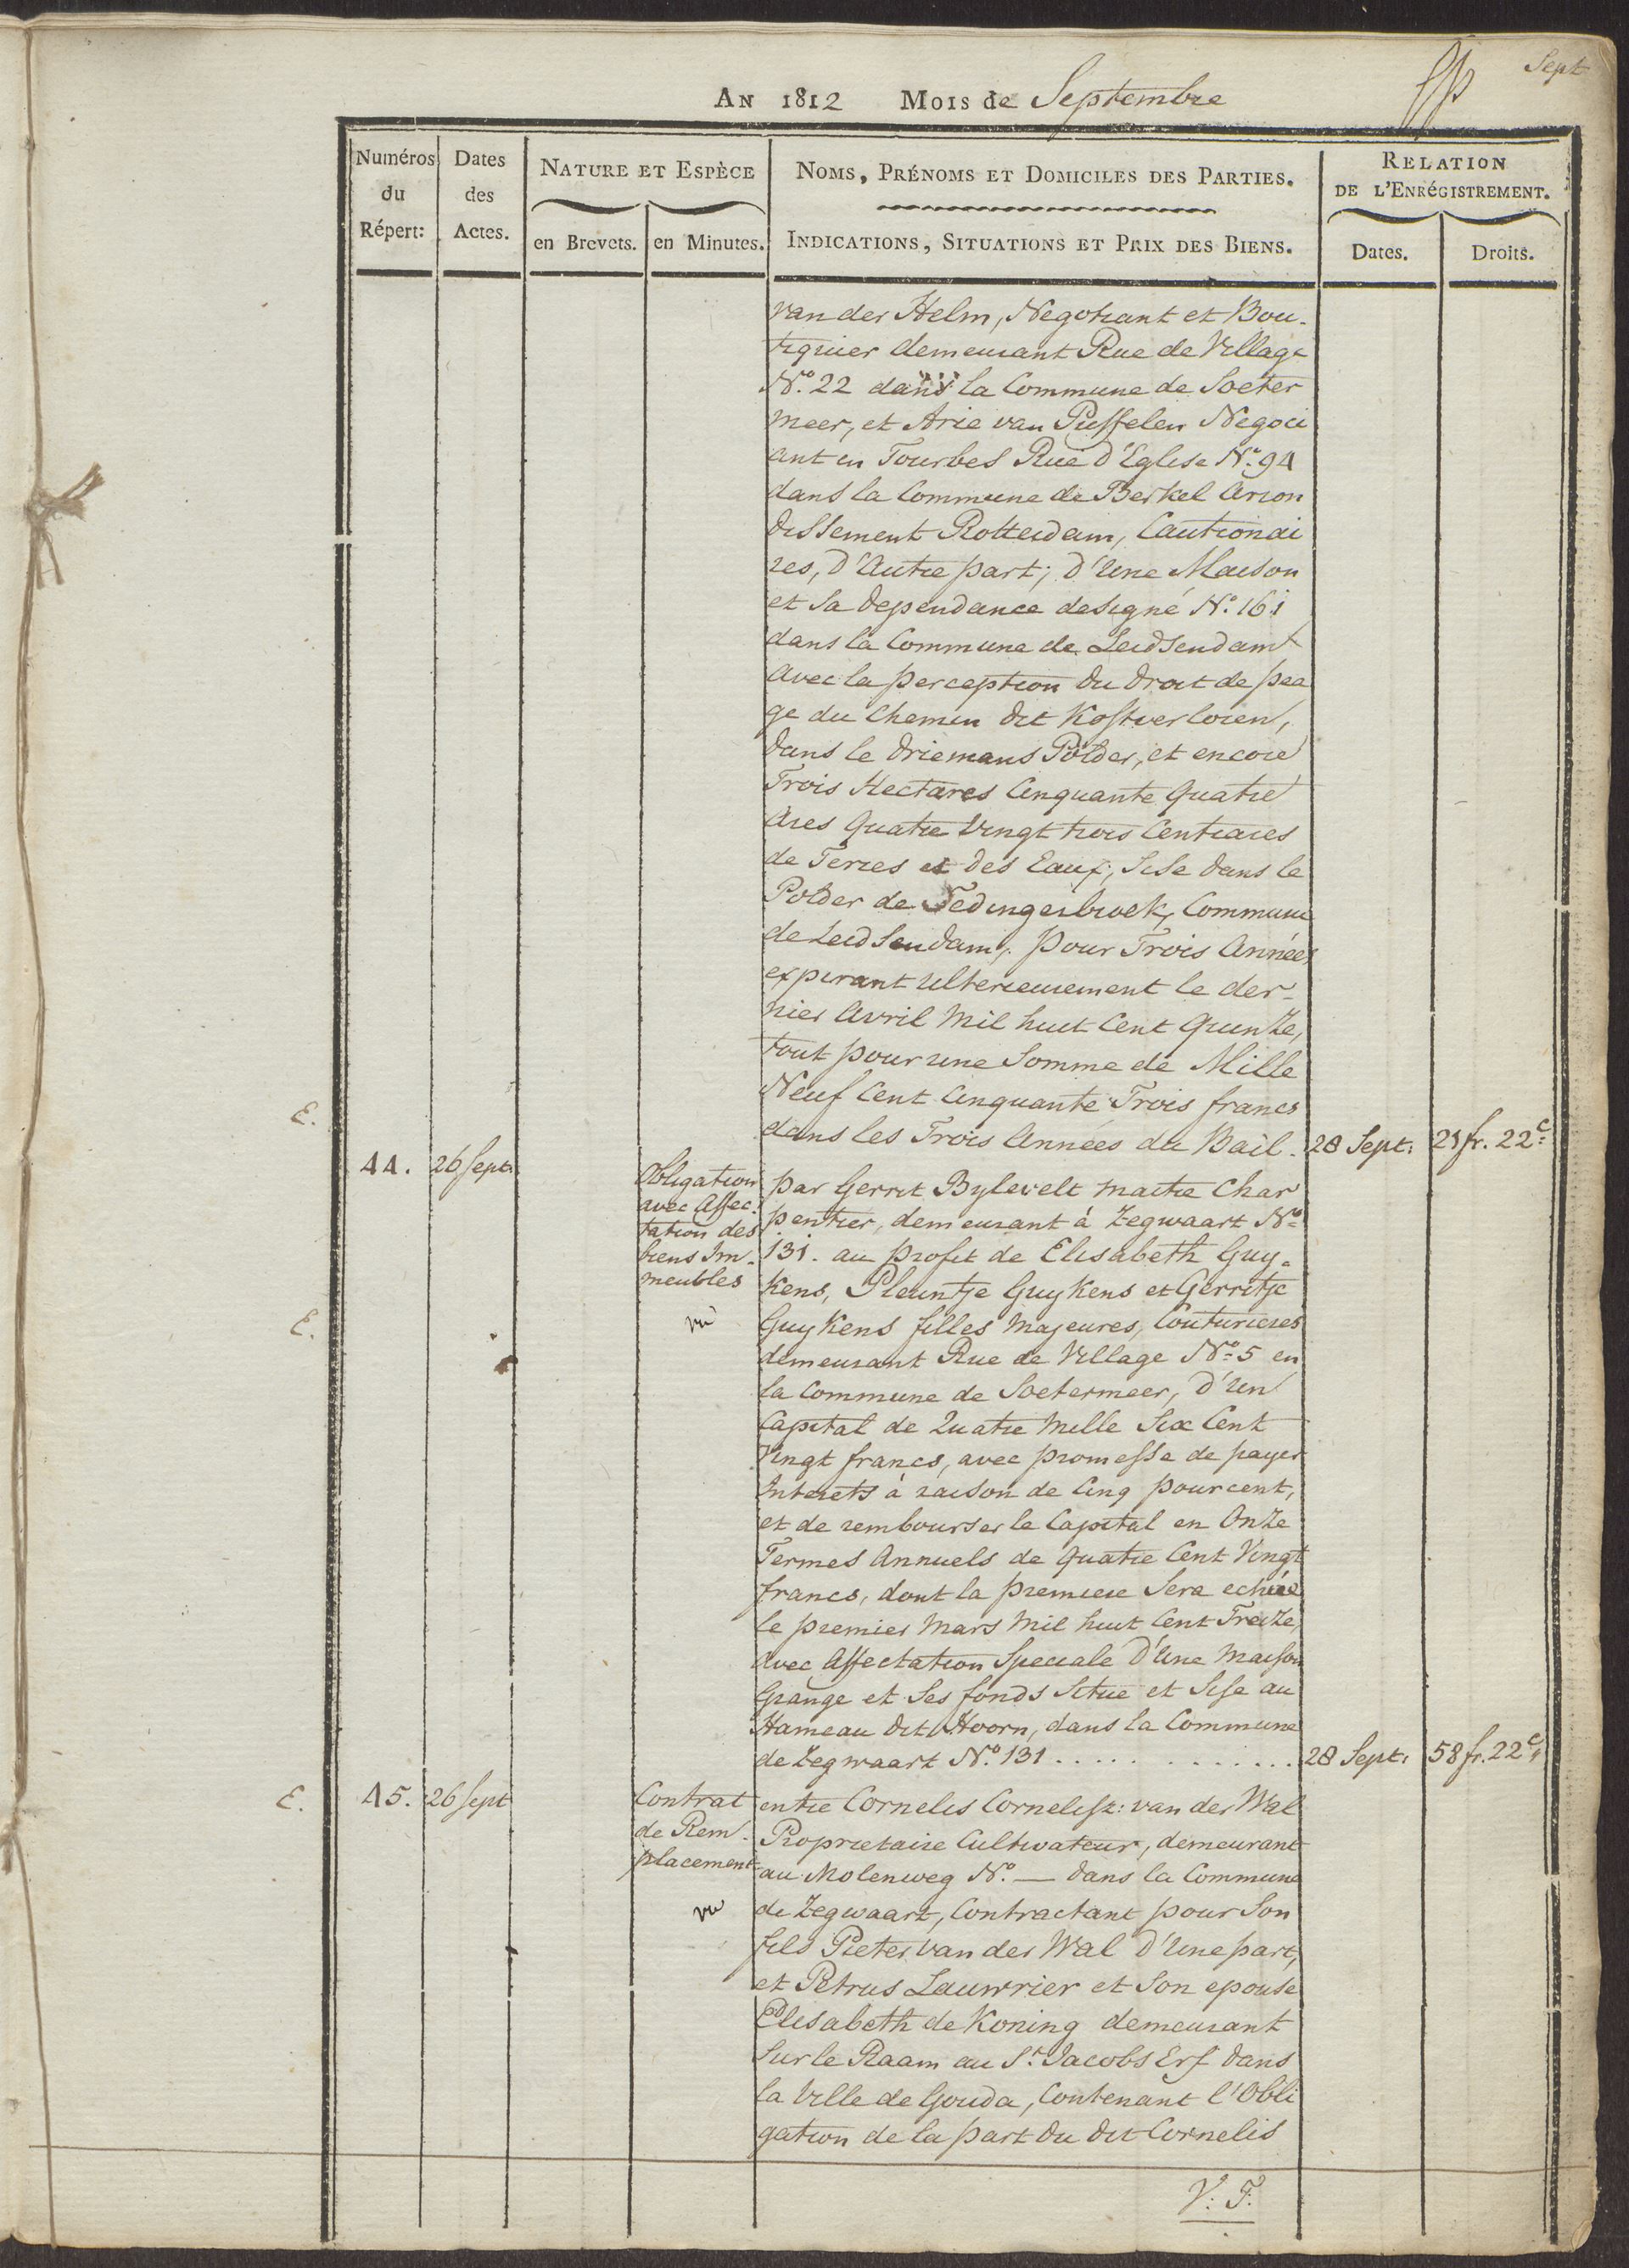 Sept
AN 1812 MOIS de Septembre
Numéros du Répert:
Dates des Actes.
NATURE ET ESPÈCE
en Brevets. en Minutes.
NOMS, PRÉNOMS ET DOMICILES DES PARTIES.
INDICATIONS, SITUATIONS ET PRIX DES BIENS.
RELATION
DE L'ENRÉGISTREMENT.
Dates. Droits.
van der Helm, Negotiant et Bou-
tiquier demeurant Rue de Village
N.o 22 dans la Commune de Soeter
meer, et Arie van Puffelen Negoci
ant en Tourbes Rue d'Eglise N.o 94
dans la Commune de Berkel Arron
dissement Rotterdam, Cautionai
res, d'Autre part; d'Une Maison
et Sa dependance designé N.o 161
dans la Commune de Leidsendam
Avec la perception du droit de pea
ge du Chemin dit Kostverloren,
dans le Driemans Polder, et encore
Trois Hectares Cinquante Quatre
Ares Quatre Vingt trois Centiares
de Terres et des Eaux, Sise dans le
Polder de Tedingerbroek, Commune
de Leidsendam, pour Trois Années
expirant ulterieurement le der-
nier Avril Mil huit Cent Quinze,
tout pour une Somme de Mille
Neuf Cent Cinquante Trois francs
E.
dans les Trois Années du Bail. 28 Sept: 21 fr. 22 c
44. 26 Sept:
Obligation
avec Affec-
tation des
biens Im-
meubles
vu
par Gerrit Bylevelt maitre Char
pentier, demeurant à Zegwaart N.o
131. au profit de Elisabeth Guy-
kens, Pleuntje Guykens et Gerritje
E.
Guykens filles majeures, Couturieres
demeurant Rue de Village N.o 5 en
la Commune de Soetermeer, d'Un
Capital de Quatre Mille Six Cent
Vingt francs, avec promesse de payer
Interets à raison de Cinq pourcent,
et de rembourser le Capital en Onze
Termes Annuels de Quatre Cent Vingt
francs, dont la premiere Sera echue
le premier Mars Mil huit Cent Treize,
avec Affectation Speciale d'Une Maison
Grange et Ses fonds Situé et Sise au
Hameau dit Hoorn, dans la Commune
de Zegwaart N.o 131 . . . . . . . . . . . 28 Sept: 58 fr. 22 c
E. 45. 26 Sept
Contrat
de Rem-
placement
vu
entre Cornelis Cornelisz: van der Wal
Proprietaire Cultivateur, demeurant
au Molenweg N.o — dans la Commune
de Zegwaart, Contractant pour Son
fils Pieter van der Wal d'Une part,
et Petrus Lauwrier et Son epouse
Elisabeth de Koning demeurant
Sur le Raam au St. Jacobs Erf dans
la Ville de Gouda, Contenant l'Obli
gation de la part du dit Cornelis
V: T: